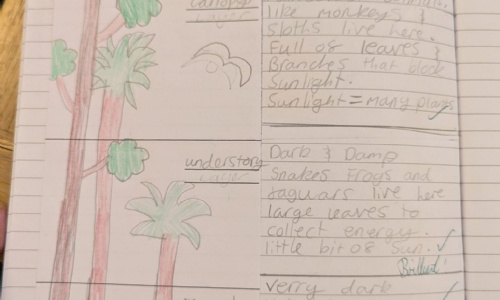 canopy
Layer
like monkeys &
Sloths live here.
Full of leaves &
Branches that block
Sunlight.
Sunlight = many plants
understory
Layer
Dark & Damp
Snakes Frogs and
Jaguars live here
large leaves to
collect energy.
little bit of Sun.
Brilliant!
verry dark